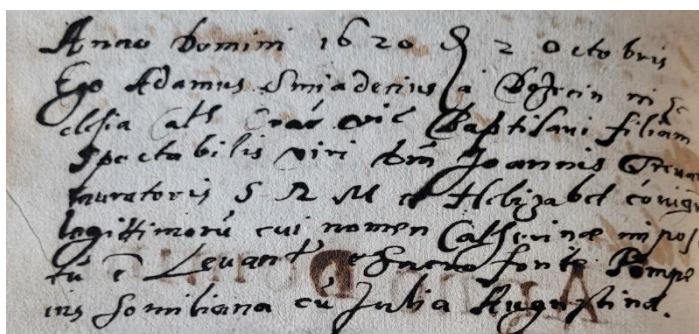 Anno Domini 1620 D 2 Octobris
Ego Adamus Smiadecius a Bo in Ec
clesia Cath Crac vic Baptisaui filiam
Spectabilis viri dm Joannis Treua
muratoris S R M et Helizabet coniugu
legittimorū cui nomen Catherinæ impos
tū ē Leuant e sacro fonte Pompe
ius somiliana cū Julia Augustina.